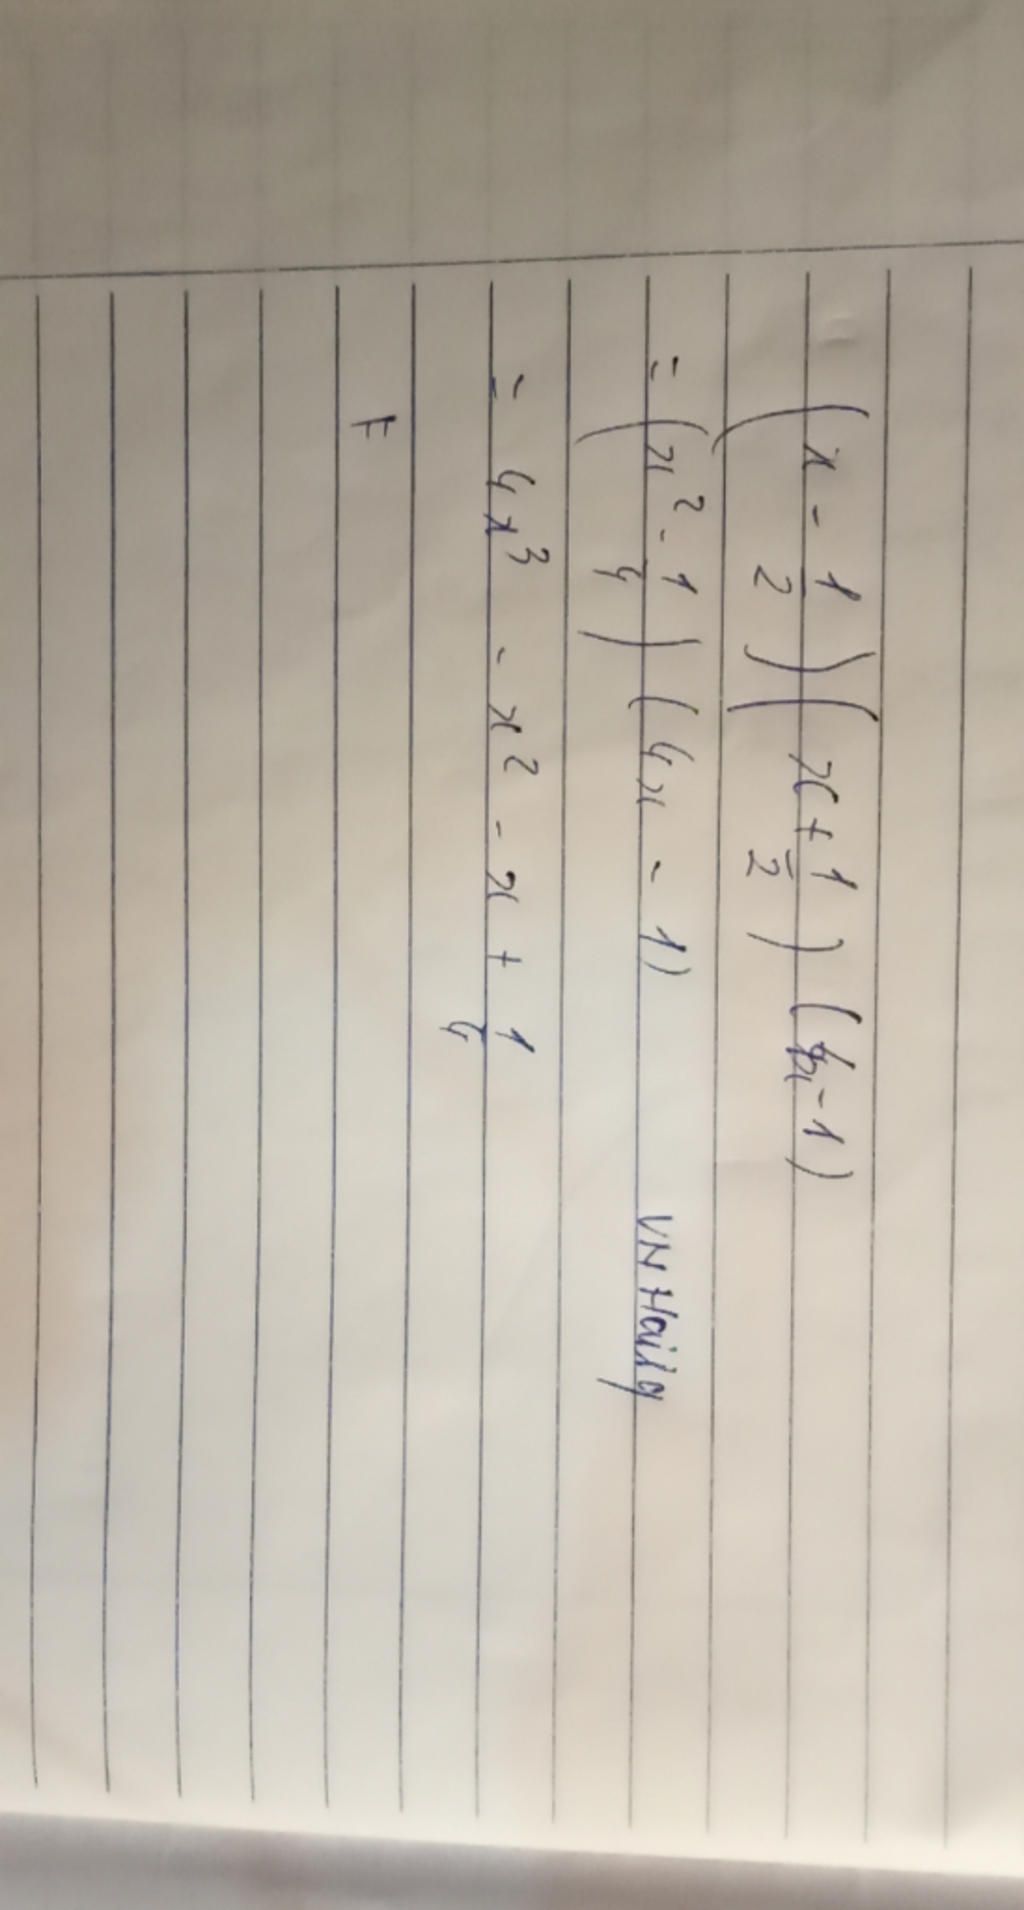 (x - 1/2)(x + 1/2)(4x - 1)
= (x² - 1/4)(4x - 1) VNHaily
= 4x³ - x² - x + 1/4
F